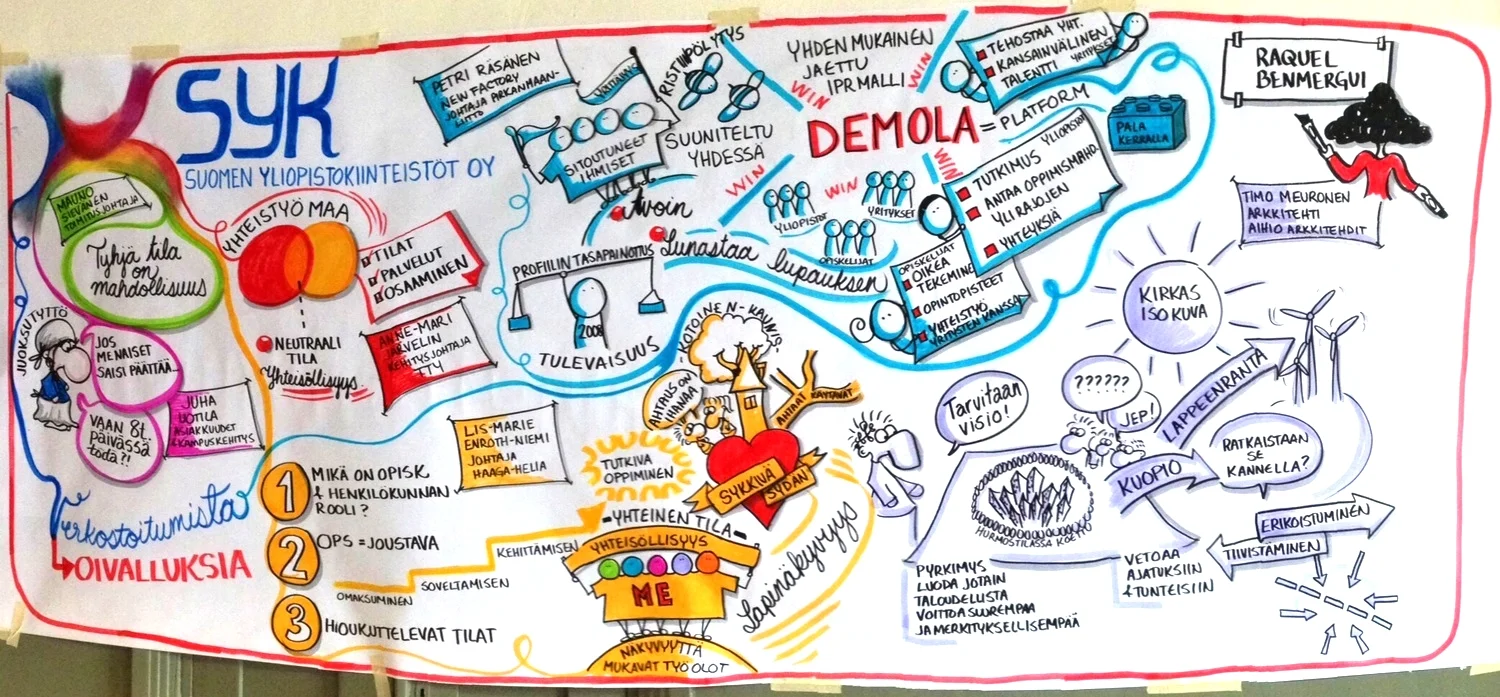 SYK
SUOMEN YLIOPISTOKIINTEISTÖT OY
MAUNO
SIEVÄNEN
TOIMITUSJOHTAJA
Tyhjä tila
on
mahdollisuus
JUOKSUTYTTÖ
JOS
ME NAISET
SAISI PÄÄTTÄÄ...
VAAN 8t
päivässä
töitä?!
JUHA
UOTILA
ASIAKKUUDET
& KAMPUSKEHITYS
Verkostoitumista
OIVALLUKSIA
YHTEISTYÖ MAA
NEUTRAALI
TILA
Yhteisöllisyys
TILAT
PALVELUT
OSAAMINEN
ANNE-MARI
JÄRVELIN
KEHITYSJOHTAJA
TTY
PETRI RÄSÄNEN
NEW FACTORY
JOHTAJA PIRKANMAAN-
LIITTO
YRITTÄJYYS
SITOUTUNEET
IHMISET
RISTIINPÖLYTYS
SUUNITELTU
YHDESSÄ
Avoin
Lunastaa lupauksen
PROFIILIN TASAPAINOTUS
2008
TULEVAISUUS
YHDEN MUKAINEN
JAETTU
IPR MALLI
WIN
WIN
WIN
WIN
WIN
DEMOLA = PLATFORM
YLIOPISTOT
YRITYKSET
OPISKELIJAT
TEHOSTAA YHT.
KANSAINVÄLINEN
TALENTTI
YRITYKSET
PALA
KERRALLA
YLIOPISTOT
TUTKIMUS
ANTAA OPPIMISMAHD.
YLI RAJOJEN
YHTEYKSIÄ
OPISKELIJAT
OIKEA
TEKEMINEN
OPINTOPISTEET
YHTEISTYÖ
YRITYSTEN KANSSA
1 MIKÄ ON OPISK.
& HENKILÖKUNNAN
ROOLI?
2 OPS = JOUSTAVA
3 HIOUKUTTELEVAT TILAT
LIS-MARIE
ENROTH-NIEMI
JOHTAJA
HAAGA-HELIA
OMAKSUMINEN
SOVELTAMISEN
KEHITTÄMISEN
TUTKIVA
OPPIMINEN
AHTAUS ON
IHANAA
KOTOINEN - KAUNIS -
AHTAAT KÄYTÄVÄT
SYKKIVÄ
SYDÄN
-YHTEINEN TILA-
YHTEISÖLLISYYS
ME
NÄKYVYYTTÄ
MUKAVAT TYÖ OLOT
Läpinäkyvyys
RAQUEL
BENMERGUI
TIMO MEURONEN
ARKKITEHTI
AIHIO ARKKITEHDIT
KIRKAS
ISO KUVA
Tarvitaan
visio!
??????
JEP!
LAPPEENRANTA
KUOPIO
RATKAISTAAN
SE
KANNELLA?
HURMOSTILASSA KOETTU
PYRKIMYS
LUODA JOTAIN
TALOUDELLISTA
VOITTOA SUUREMPAA
JA MERKITYKSELLISEMPÄÄ
VETOAA
AJATUKSIIN
& TUNTEISIIN
ERIKOISTUMINEN
TIIVISTÄMINEN